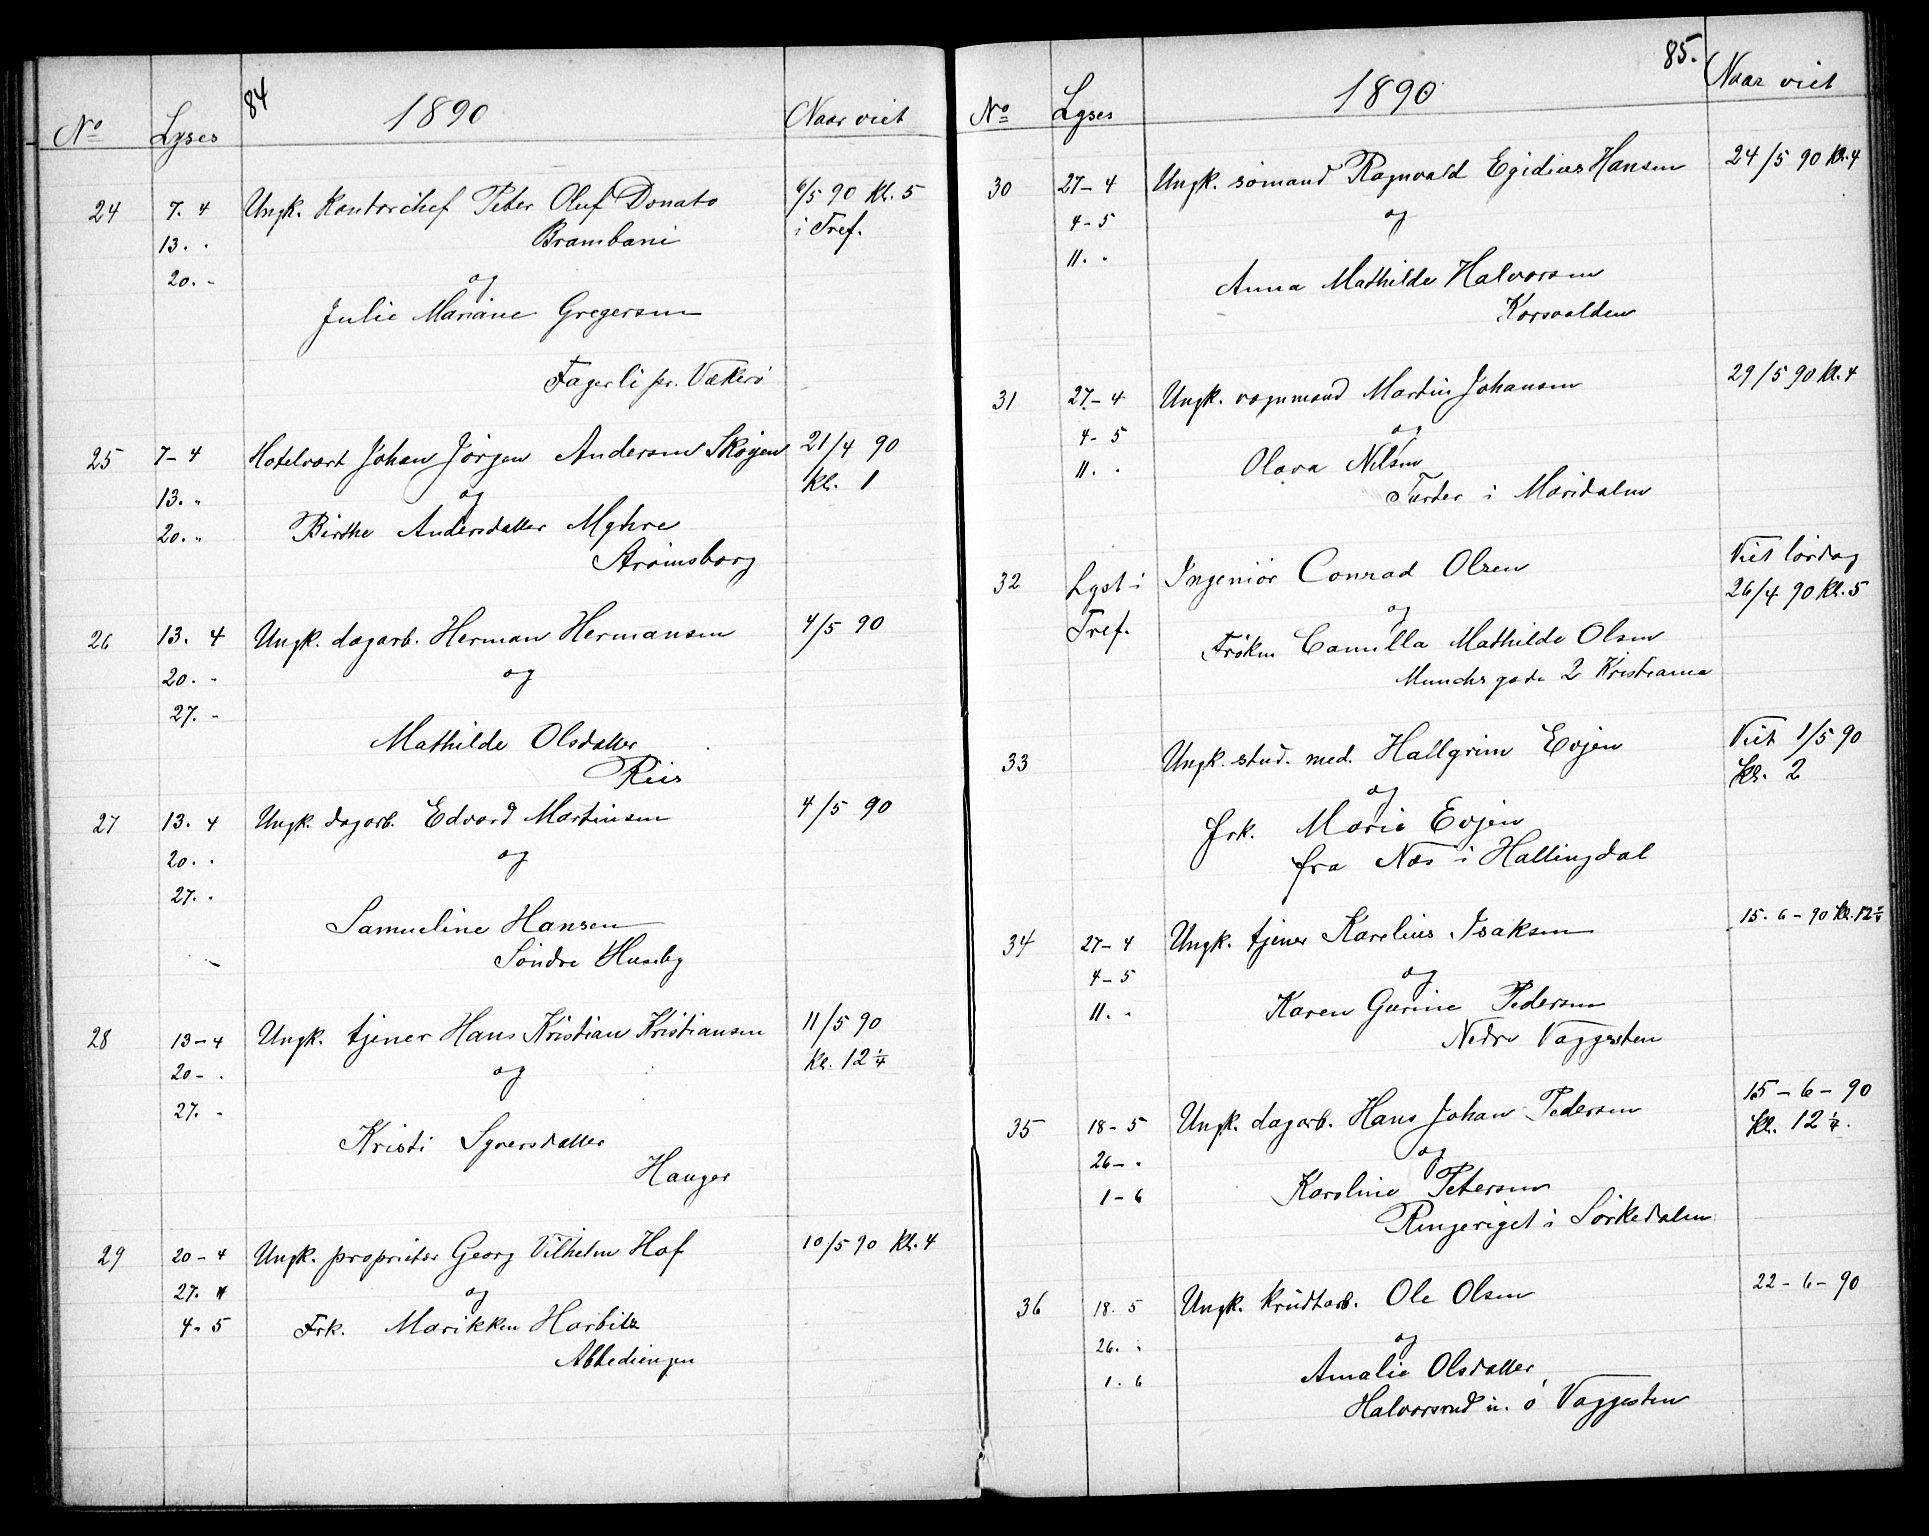 84
1890
No Lyses Naar viet
24 7. 4 Ungk. Kontorchef Peter Oluf Donato 6/5 90 Kl. 5
13. " Brambani i Tref.
20. " og
Julie Mariane Gregersen
Fagerli pr. Vækerö
25 7-4 Hotelvært Johan Jörgen Andersen Sköyen 21/4 90
13. " og Kl. 1
20. " Birthe Andersdatter Myhre
Strömsborg
26 13. 4 Ungk. dagarb. Herman Hermansen 4/5 90
20. " og
27. "
Mathilde Olsdatter
Riis
27 13. 4 Ungk. dagarb. Edvard Martinsen 4/5 90
20. " og
27. "
Samueline Hansen
Söndre Huseby
28 13-4 Ungk. tjener Hans Kristian Kristiansen 11/5 90
20- " og Kl. 12 1/4
27. "
Kristi Syversdatter
Hauger
29 20-4 Ungk. proprietær Georg Vilhelm Hof 10/5 90 Kl. 4
27. 4 og
4-5 Frk. Marikken Harbitz
Abbediengen
85.
1890
No Lyses Naar viet
30 27-4 Ungk. sömand Ragnvald Egidius Hansen 24/5 90 Kl. 4
4-5 og
11. "
Anna Mathilde Halvorsen
Korsvolden
31 27-4 Ungk. vognmand Martin Johansen 29/5 90 Kl. 4
4-5 og
11. " Olava Nilsen
Turter i Maridalen
32 Lyst i Ingeniör Conrad Olsen Viet lördag
Tref. og 26/4 90 Kl. 5
Fröken Camilla Mathilde Olsen
Munchs gade 2 Kristiania
33 Ungk. stud. med. Hallgrim Evjen Viet 1/5 90
og Kl. 2
frk. Marie Evjen
fra Næs i Hallingdal
34 27-4 Ungk. tjener Karelius Isaksen 15. 6-90 Kl. 12 1/4
4-5 og
11. " Karen Gurine Pedersen
Nedre Vaggesten
35 18-5 Ungk. dagarb. Hans Johan Pedersen 15-6-90
26- " og Kl. 12 1/4.
1-6 Karoline Petersen
Ringeriget i Sörkedalen
36 18. 5 Ungk. krudtarb. Ole Olsen 22-6-90
26. " og
1. 6 Amalie Olsdatter
Halvorsrud u. ö Vaggesten